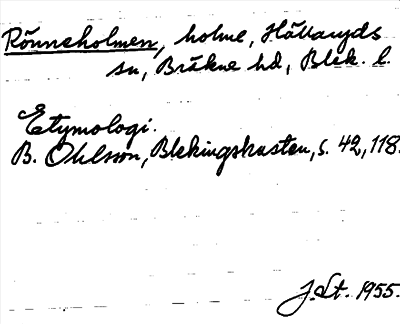 Rönneholmen, holme, Hällaryds
sn, Bräkne hd, Blek. l.
Etymologi.
B. Ohlsson, Blekingskusten, s. 42, 118.
J.Lt. 1955.